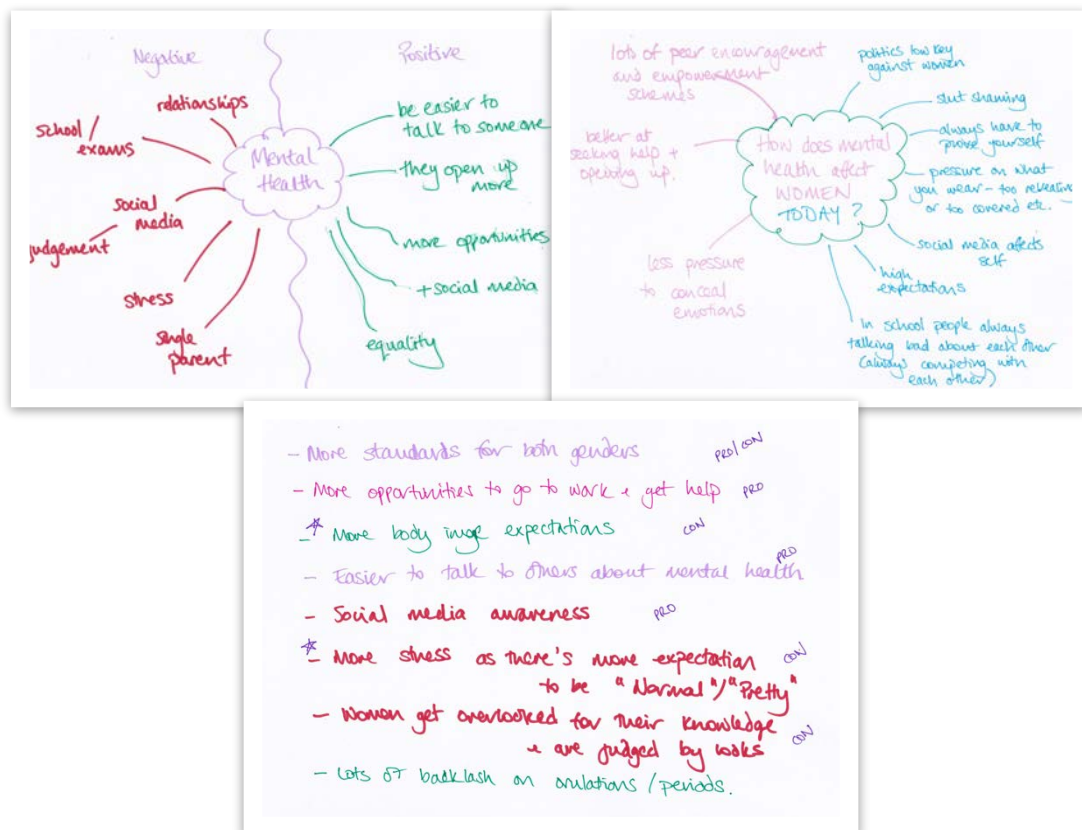 Negative
Positive
Mental
Health
relationships
school/
exams
social
media
judgement
stress
single
parent
be easier to
talk to someone
they open up
more
more opportunities
+social media
equality
lots of peer encouragement
and empowerment
schemes
better at
seeking help +
opening up.
less pressure
to conceal
emotions
How does mental
health affect
WOMEN
TODAY?
politics low key
against women
slut shaming
always have to
prove yourself
pressure on what
you wear - too revealing
or too covered etc.
social media affects
self
high
expectations
In school people always
talking bad about each other
(always competing with
each other)
- More standards for both genders PRO/CON
- More opportunities to go to work & get help PRO
- More body image expectations CON
- Easier to talk to others about mental health PRO
- Social media awareness PRO
- More stress as there's more expectation CON
to be "Normal"/"Pretty"
- Women get overlooked for their knowledge
& are judged by looks CON
- Lots of backlash on ovulations/periods.